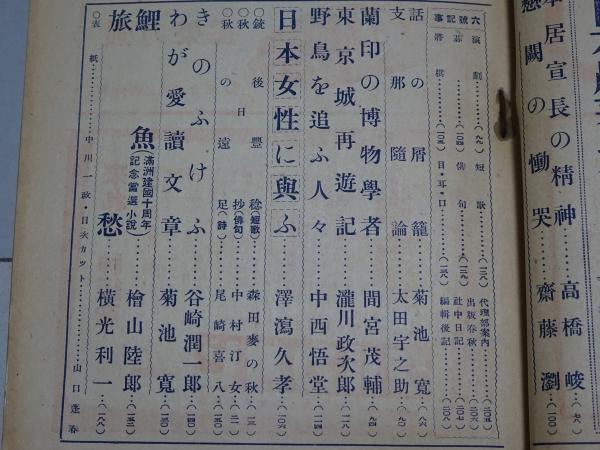 本居宣長の精神……高橋峻…(七八)
懸闕の慟哭……齋藤瀏…(一〇〇)
六號記事
演劇……(九七)
短歌……(一二八)
將棋……(一〇五)
目・耳・口……(一二八)
俳句……(一二九)
代理部案内……(二〇五)
出版春秋……(二〇六)
社中日記……(二〇七)
編輯後記……(二〇八)
話の屑籠……菊池寛…(八六)
支那隨論……太田宇之助…(九〇)
蘭印の博物學者……間宮茂輔…(九四)
東京城再遊記……瀧川政次郎…(一一八)
野鳥を追ふ人々……中西悟堂…(一一四)
日本女性に與ふ……澤瀉久孝…(一〇六)
○銃後豐稔(短歌)……森田麥の秋…(一三)
○秋日抄(俳句)……中村汀女…(二一)
○秋の遠足(詩)……尾崎喜八…(一五〇)
きのふけふ……谷崎潤一郎…(一四〇)
わが愛讀文章……菊池寛…(一三〇)
鯉魚(滿洲建國十周年記念當選小說)……檜山陸郎…(一五二)
旅愁……橫光利一…(一八八)
○表紙……中川一政・目次カット……山口蓬春